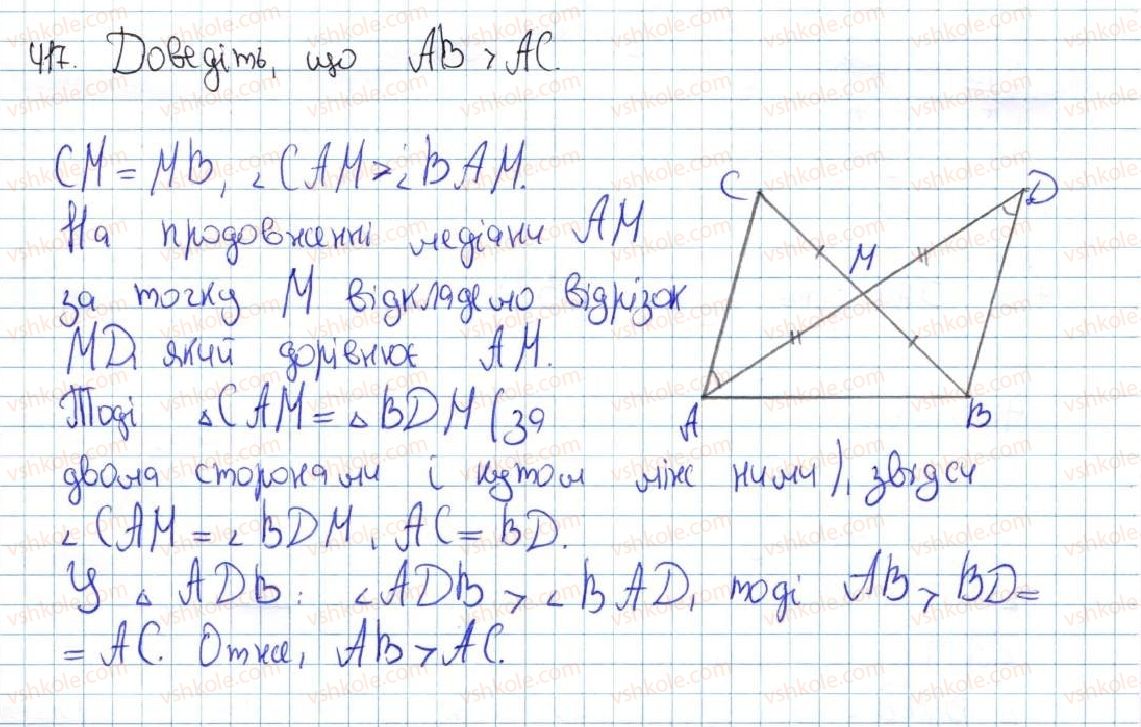 417. Доведіть, що AB > AC.
CM = MB, ∠CAM > ∠BAM.
На продовженні медіани AM
за точку M відкладемо відрізок
MD, який дорівнює AM.
Тоді △CAM = △BDM (за
двома сторонами і кутом між ними), звідси
∠CAM = ∠BDM, AC = BD.
У △ADB: ∠ADB > ∠BAD, тоді AB > BD =
= AC. Отже, AB > AC.
C
D
M
A
B